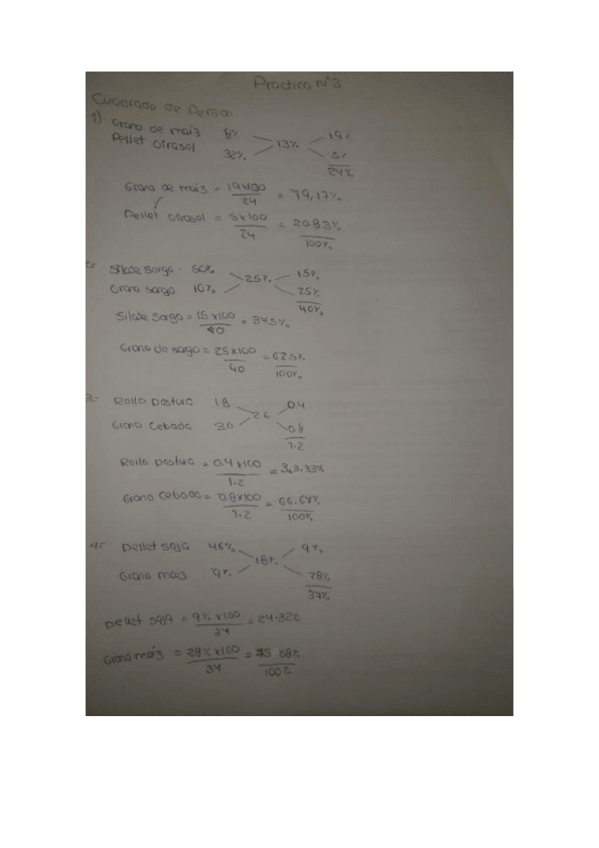 Practica N°3
Cuadrado de Person
1) Grano de maiz 8% 13% 19%
Pellet Girasol 32% 5%
24%
Grano de maiz = 19x100 = 79,17%
24
Pellet Girasol = 5x100 = 20.83%
24 100%
2.- Silate Sorgo 50% 25% 15%
Grano sorgo 10% 25%
40%
Silate Sorgo = 15x100 = 345%
40
Grano de sorgo = 25x100 = 62.5%
40 100%
3.- Rollo Pastura 1.8 2.6 0.4
Grano Cebada 3.0 0.8
1.2
Rollo pastura = 0.4x100 = 33.33%
1.2
Grano Cebada = 0.8x100 = 66.67%
1.2 100%
4.- Pellet soja 46% 18% 9%
Grano mais 9% 28%
37%
Pellet soja = 9% x100 = 24.32%
37
Grano maiz = 28% x100 = 75.68%
37 100%